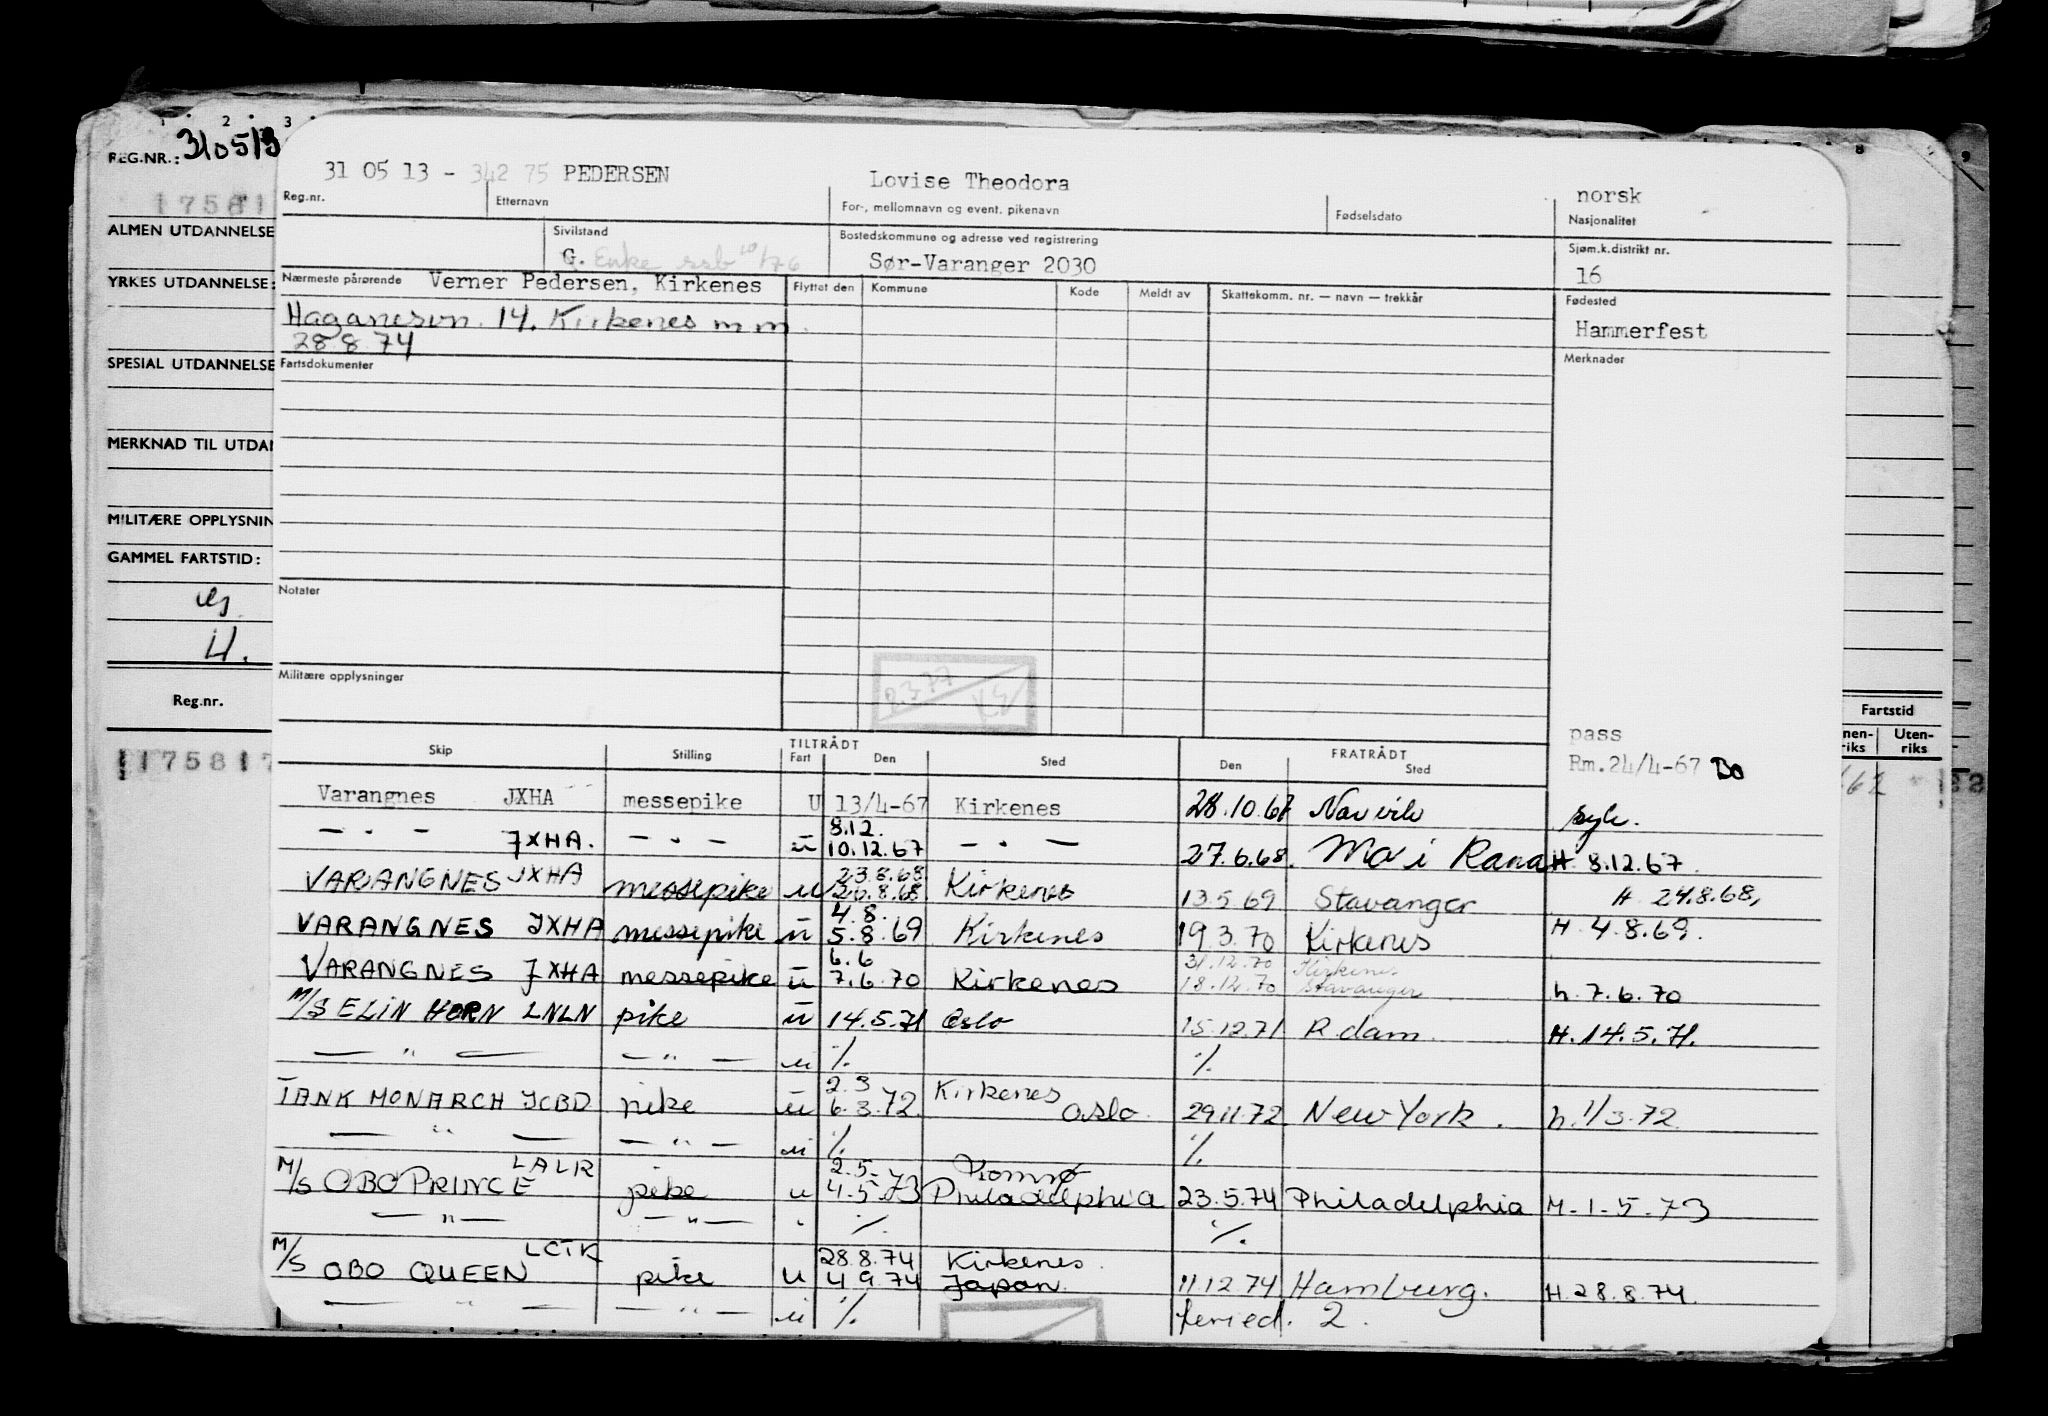 1 2 3
REG.NR.: 310513
31 05 13 - 342 75 PEDERSEN Lovise Theodora norsk
Reg.nr. Etternavn For-, mellomnavn og event. pikenavn Fødselsdato Nasjonalitet
Sivilstand Bostedskommune og adresse ved registrering Sjøm.k.distrikt nr.
G. Enke ssb 10/76 Sør-Varanger 2030 16
Nærmeste pårørende Verner Pedersen, Kirkenes Flyttet den Kommune Kode Meldt av Skattekomm. nr. — navn — trekkår Fødested
Haganesvn. 14. Kirkenes m m. Hammerfest
28.8.74
Fartsdokumenter Merknader
ALMEN UTDANNELSE
YRKES UTDANNELSE:
SPESIAL UTDANNELSE
MERKNAD TIL UTDAN
MILITÆRE OPPLYSNIN
GAMMEL FARTSTID:
U.
Reg.nr.
Notater
Militære opplysninger
pass
Rm.24/4-67 Bo
Fartstid
nen-riks Uten-riks
8 9
Skip Stilling TILTRÅDT Fart Den Sted FRATRÅDT Den Sted
Varangnes JXHA messepike U 13/4-67 Kirkenes 28.10.67 Narvik syk.
— " — JXHA. — " — u 8.12. 10.12.67 — " — 27.6.68. Mo i Rana H. 8.12.67.
VARANGNES JXHA messepike u 23.8.68 26.8.68 Kirkenes 13.5.69 Stavanger H 24.8.68,
VARANGNES JXHA messepike u 4.8. 5.8.69 Kirkenes 19.3.70 Kirkenes H 4.8.69.
VARANGNES JXHA messepike u 6.6 7.6.70 Kirkenes 31.12.70 18.12.70 Kirkenes Stavanger h.7.6.70
M/S ELIN HORN LNLN pike u 14.5.71 Oslo 15.12.71 R.dam. H.14.5.71.
— " — — " — u % %
TANK MONARCH JCBD pike u 2.3 6.3.72 Kirkenes Oslo. 29.11.72 New York. h.1/3.72.
— " — — " — u % %
M/S OBO PRINCE LALR pike u 2.5- 4.5.73 Tromsø Philadelphia 23.5.74 Philadelphia H-1-5-73
— " — — " — % %
M/S OBO QUEEN LCTK pike u 28.8.74 4.9.74 Kirkenes. Japan. 11.12.74 Hamburg. H.28.8.74.
— " — — " — u % feried. 2.